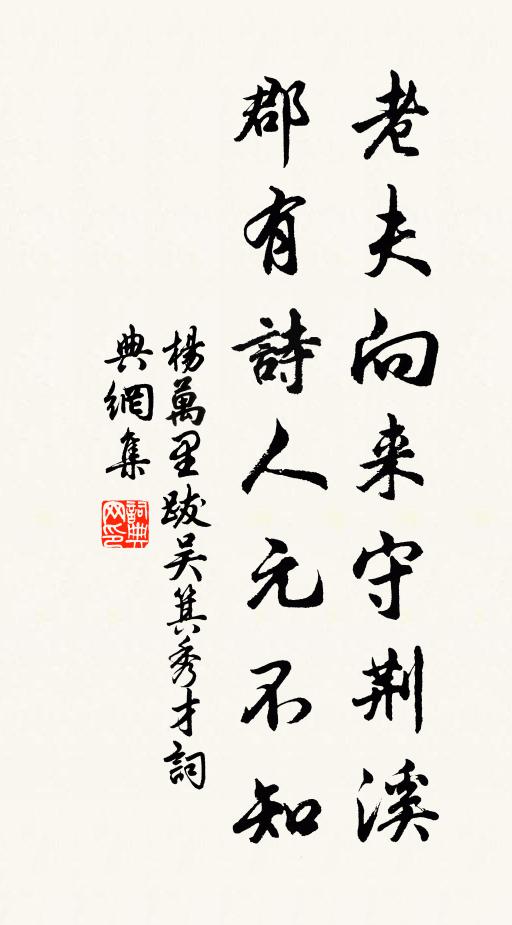 老夫向来守荆溪
郡有詩人元不知
楊萬里跋吴箕秀才詞
典網集
詞典
网印